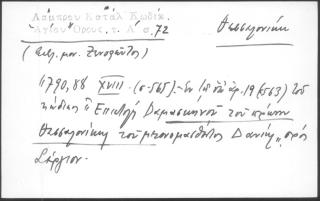 Λάμπρου Κατάλ. Κωδίκ.
Ἁγίου Ὄρους, τ. Α΄ σ. 72
Θεσσαλονίκη
(Ἀθ. μον. Ξενοφῶντος)
"790,88 XVIII. (σ. 565).- Ἐν ὑπ' ἀρ. 19 (563) τοῦ
κώδικος "Ἐπιστολὴ Δαμασκηνοῦ τοῦ πρώην
Θεσσαλονίκης τοῦ μετονομασθέντος Δανιὴλ" πρὸς
Σέργιον.